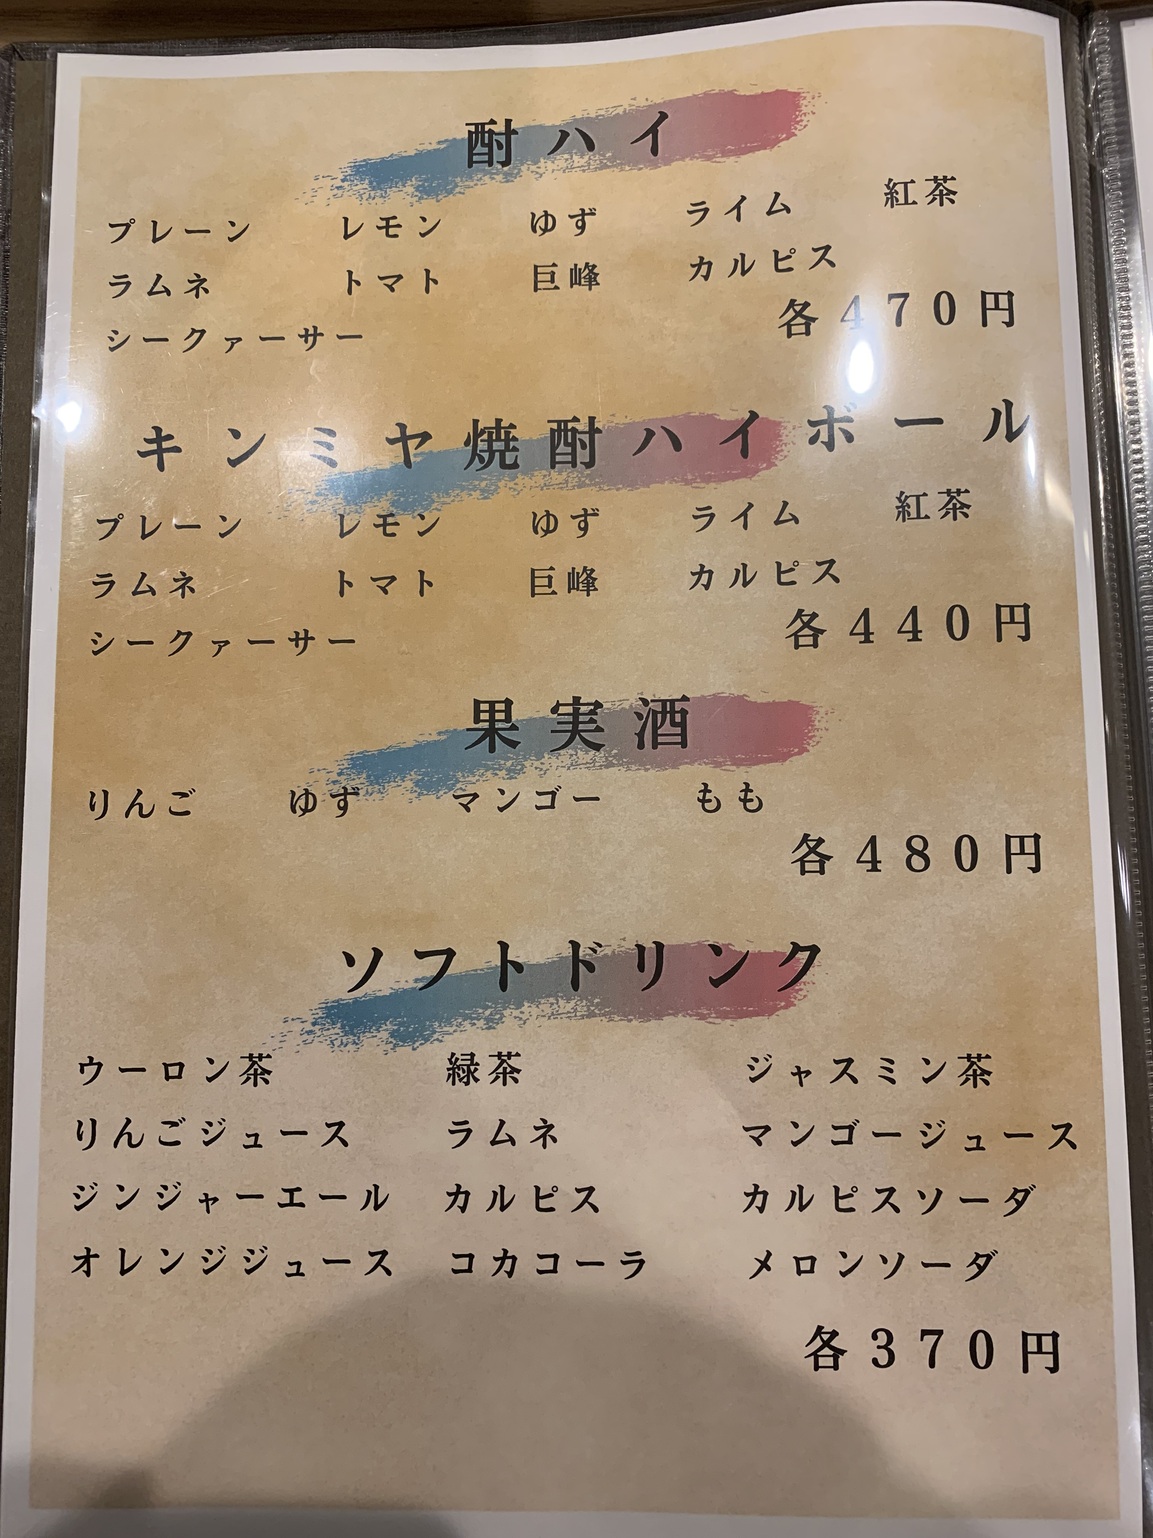 酎ハイ
プレーン レモン ゆず ライム 紅茶
ラムネ トマト 巨峰 カルピス
シークァーサー 各470円
キンミヤ焼酎ハイボール
プレーン レモン ゆず ライム 紅茶
ラムネ トマト 巨峰 カルピス
シークァーサー 各440円
果実酒
りんご ゆず マンゴー もも
各480円
ソフトドリンク
ウーロン茶 緑茶 ジャスミン茶
りんごジュース ラムネ マンゴージュース
ジンジャーエール カルピス カルピスソーダ
オレンジジュース コカコーラ メロンソーダ
各370円